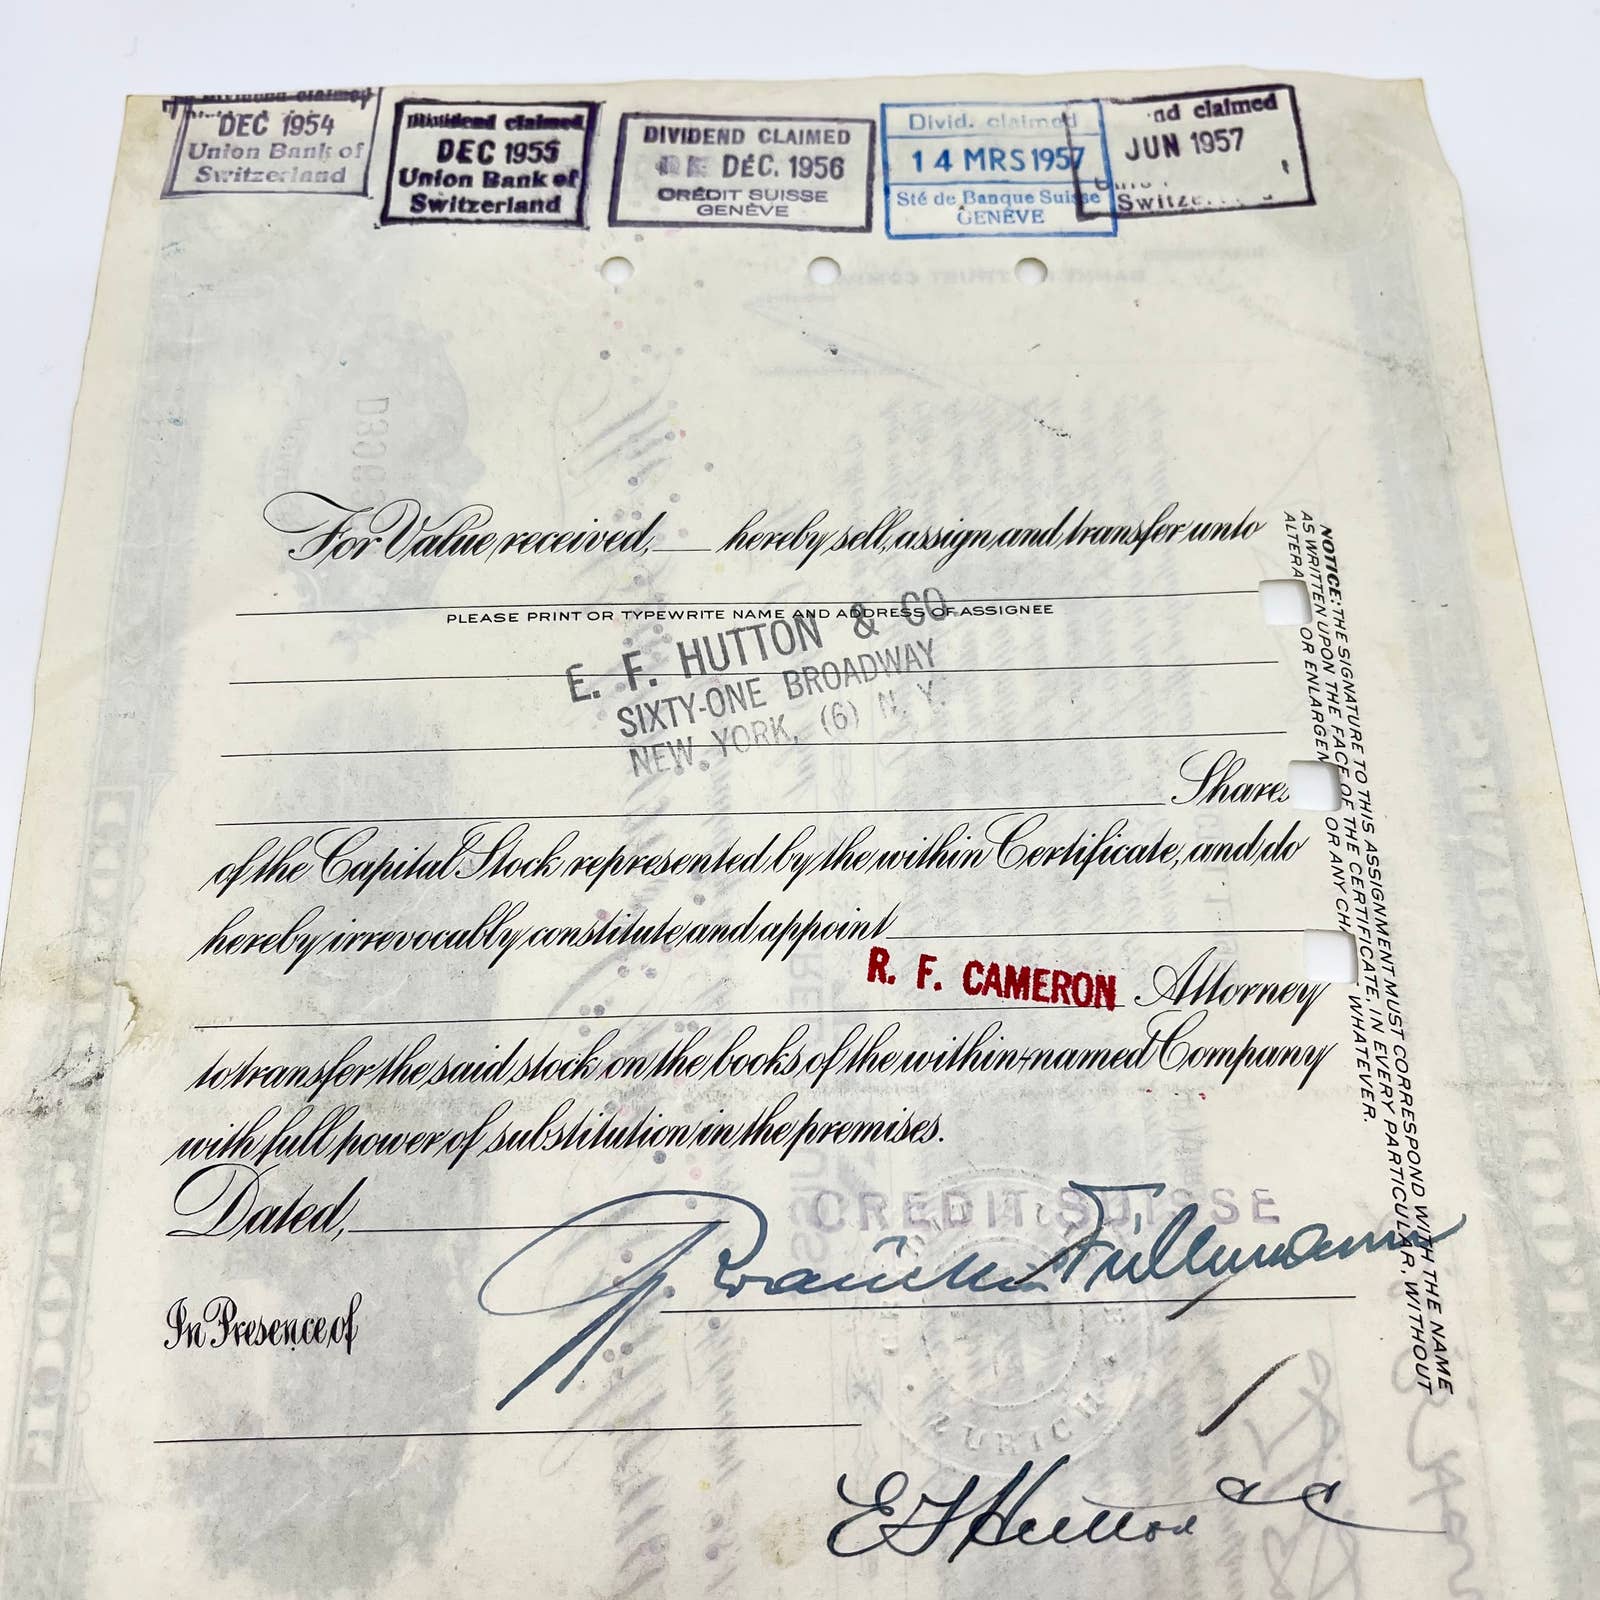 Dividend claimed
DEC 1954
Union Bank of
Switzerland
Dividend claimed
DEC 1955
Union Bank of
Switzerland
DIVIDEND CLAIMED
DÉC. 1956
CRÉDIT SUISSE
GENÈVE
Divid. claimed
14 MRS 1957
Sté de Banque Suisse
GENÈVE
nd claimed
JUN 1957
Switze
For Value received, hereby sell, assign and transfer unto
PLEASE PRINT OR TYPEWRITE NAME AND ADDRESS OF ASSIGNEE
E. F. HUTTON & CO.
SIXTY-ONE BROADWAY
NEW YORK, (6) N. Y.
Shares
of the Capital Stock represented by the within Certificate, and do
hereby irrevocably constitute and appoint
R. F. CAMERON Attorney
to transfer the said stock on the books of the within-named Company
with full power of substitution in the premises.
Dated,
CREDIT SUISSE
In Presence of
ZURICH
E F Hutton & Co
NOTICE: THE SIGNATURE TO THIS ASSIGNMENT MUST CORRESPOND WITH THE NAME
AS WRITTEN UPON THE FACE OF THE CERTIFICATE, IN EVERY PARTICULAR, WITHOUT
ALTERA OR ENLARGEM OR ANY CHA WHATEVER.